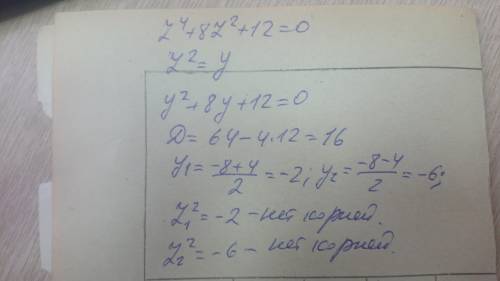 z⁴+8z²+12=0
z²=y
y²+8y+12=0
D=64-4·12=16
y₁=(-8+4)/2=-2; y₂=(-8-4)/2=-6;
z₁²=-2 - нет корней.
z₂²=-6 - нет корней.